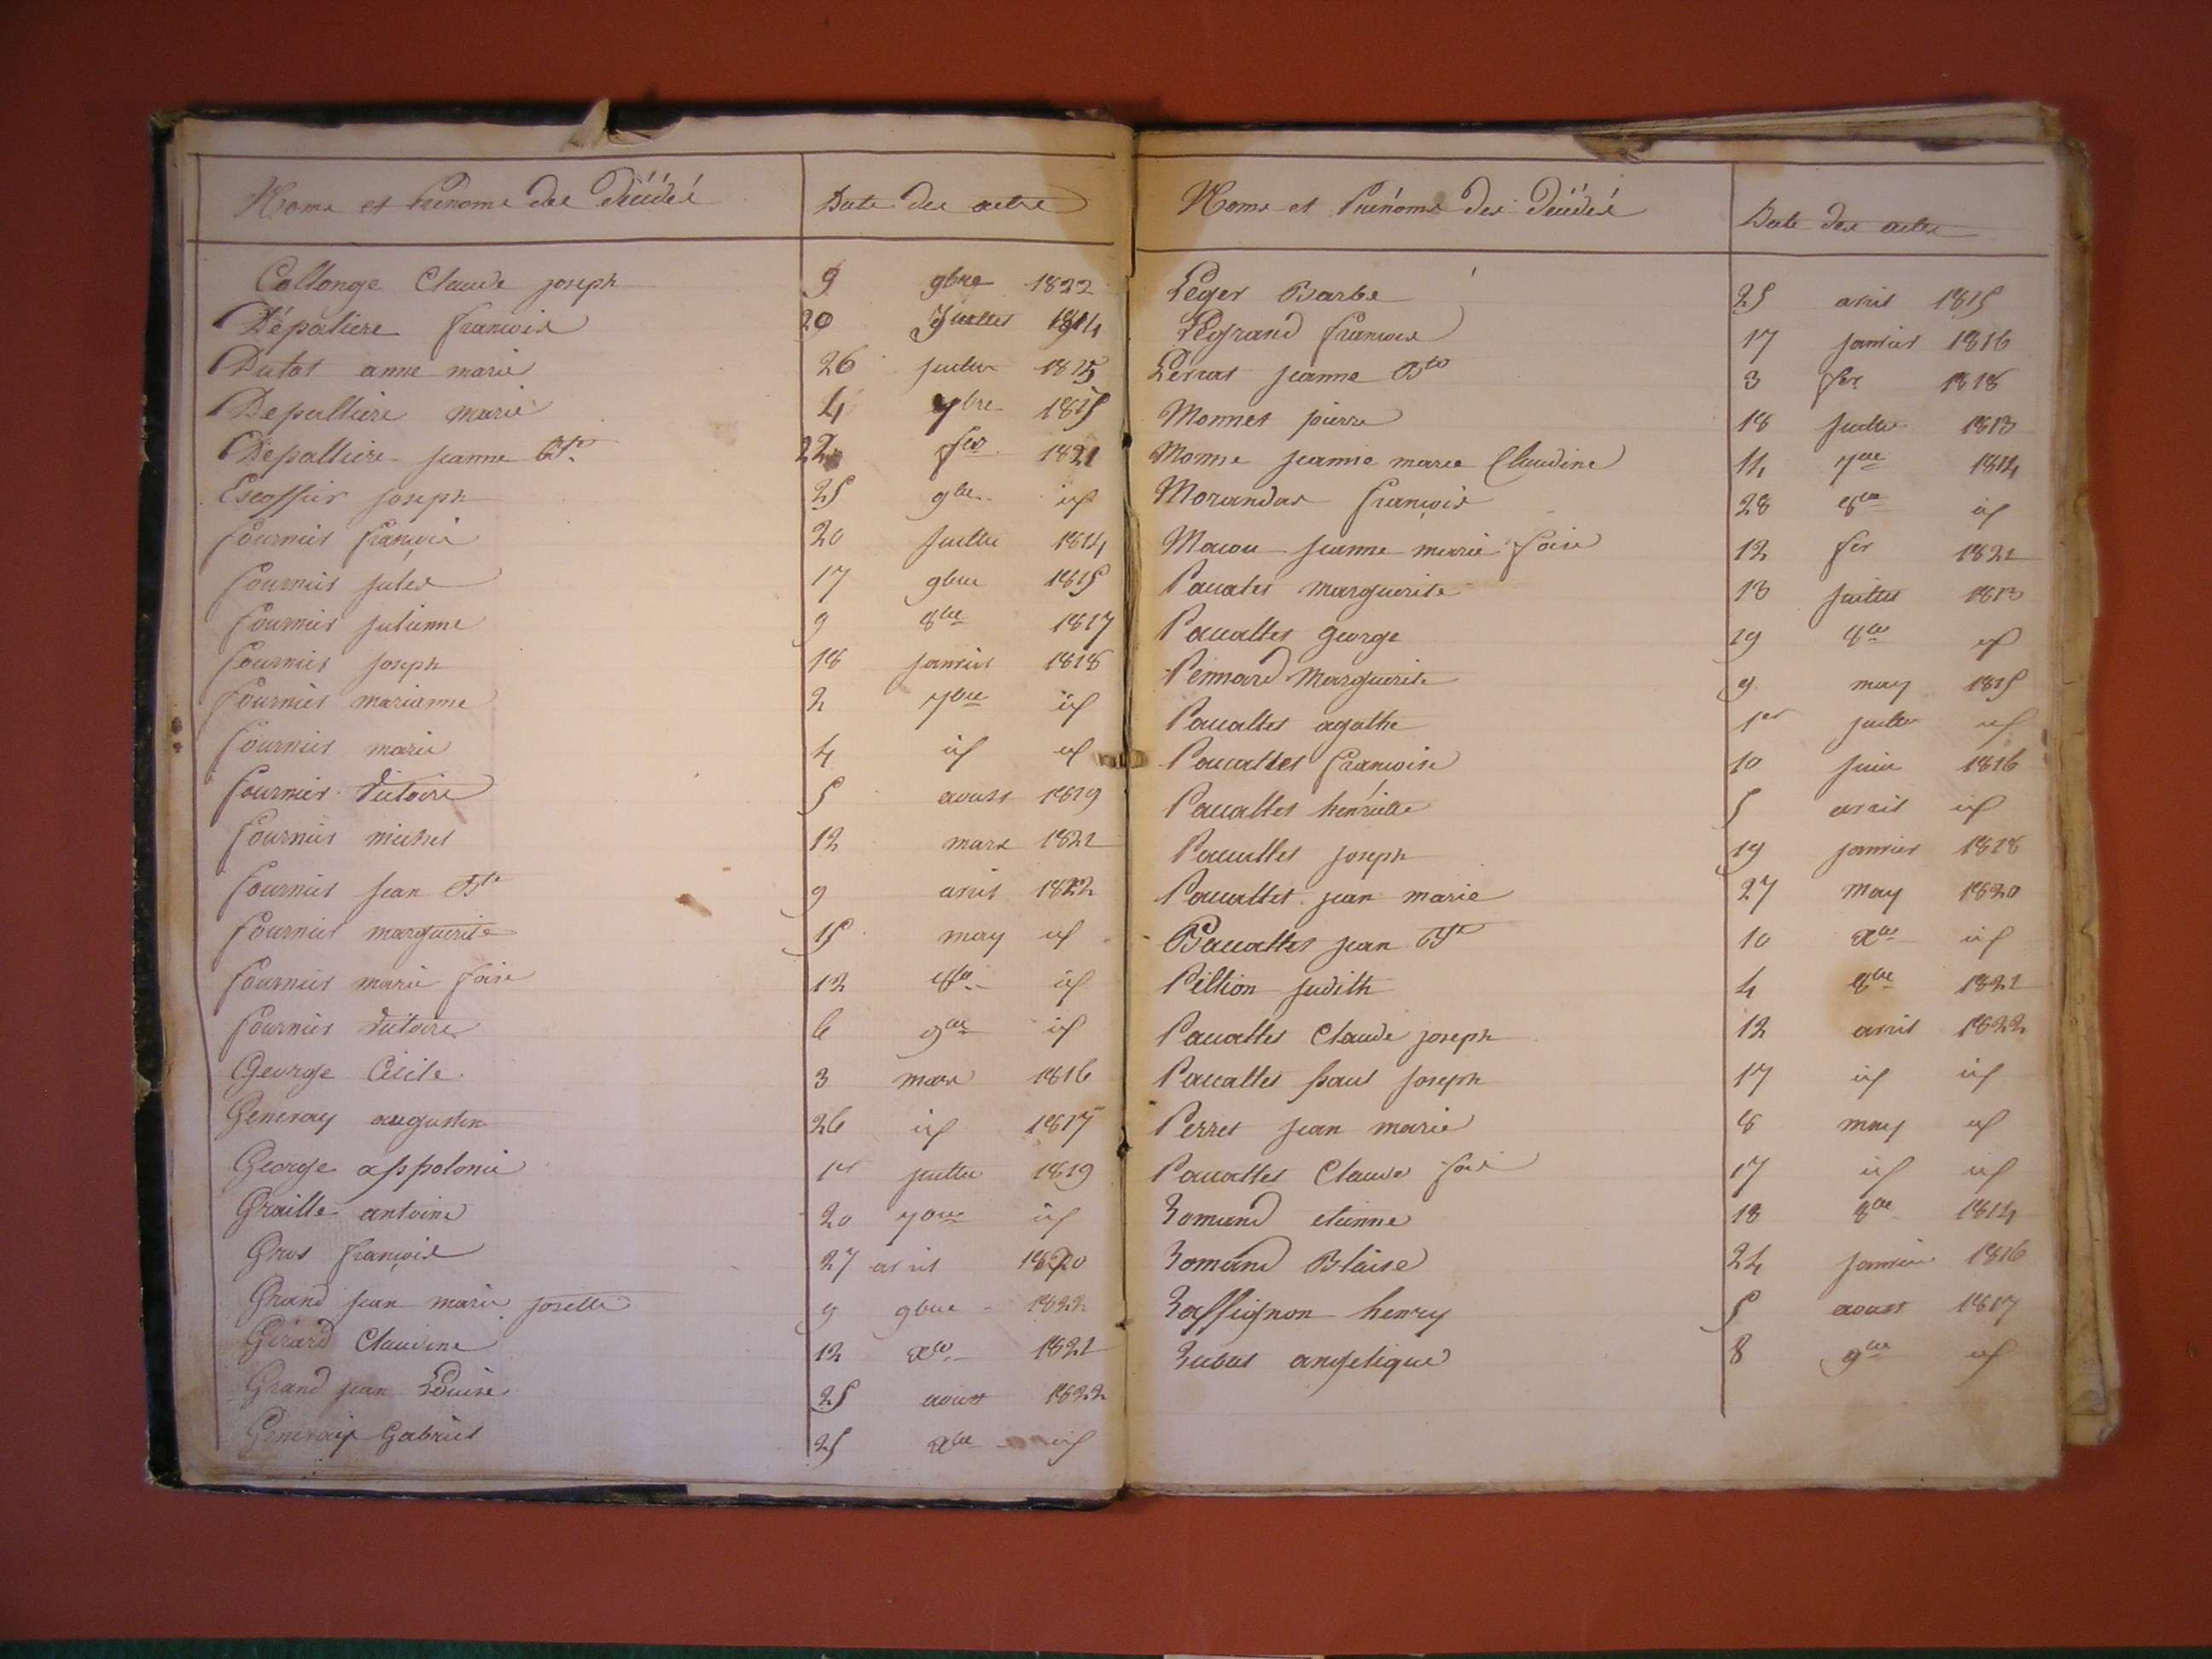 Noms et Prénoms des Décédés Date des actes
Collonge Claude joseph 9 9bre 1822
Dépaliere francois 20 Juillet 1814
Dutot anne marie 26 juillet 1815
Depalliere marie 4 7bre 1815
Depalliere jeanne Bte 22 fer 1821
Escoffier joseph 25 9bre id
fournier françois 20 juillet 1814
fournier jules 17 9bre 1815
fournier julienne 9 8bre 1817
fournier joseph 18 janvier 1818
fournier marianne 2 7bre id
fournier marie 4 id id
fournier victoire 5 aoust 1819
fournier michel 12 mars 1821
fournier jean Bte 9 avril 1822
fournier marguerite 15 may id
fournier marie foise 12 8bre id
fournier victoire 6 9bre id
George Cécile 3 mars 1816
Generay augustin 26 id 1817
George appolonie 1er juillet 1819
Graille antoine 20 7bre id
Gros françois 27 avril 1820
Grand jean marie josette 9 9bre 1822
Girard Claudine 12 Xbre 1821
Grand jean Louise 25 aoust 1822
Generay Gabriel 25 Xbre id
Noms et Prénoms des Décédés Date des actes
Leger Barbe 25 avril 1815
Legrand francois 17 janvier 1816
jeanne Bte 3 fer 1818
Monnet pierre 18 juillet 1813
Monne jeanne marie Claudine 14 7bre 1814
Morandas françois 28 8bre id
Macou jeanne marie foise 12 fer 1821
Paccalet marguerite 13 juillet 1813
Paccallet george 29 8bre id
Pennard Marguerite 9 may 1815
Paccallet agathe 1er juillet id
Paccallet francoise 10 juin 1816
Paccallet henriette 5 avril id
Paccallet joseph 19 janvier 1818
Paccallet jean marie 27 may 1820
Paccallet jean Bte 10 Xbre id
Pillion judith 4 8bre 1821
Paccallet Claude joseph 12 avril 1822
Paccallet paul joseph 17 id id
Perret jean marie 8 may id
Paccallet Claude fois 17 id id
Romand etienne 18 8bre 1814
Romand Blaise 24 janvier 1816
Rassignon henry 5 aoust 1817
angelique 8 9bre id